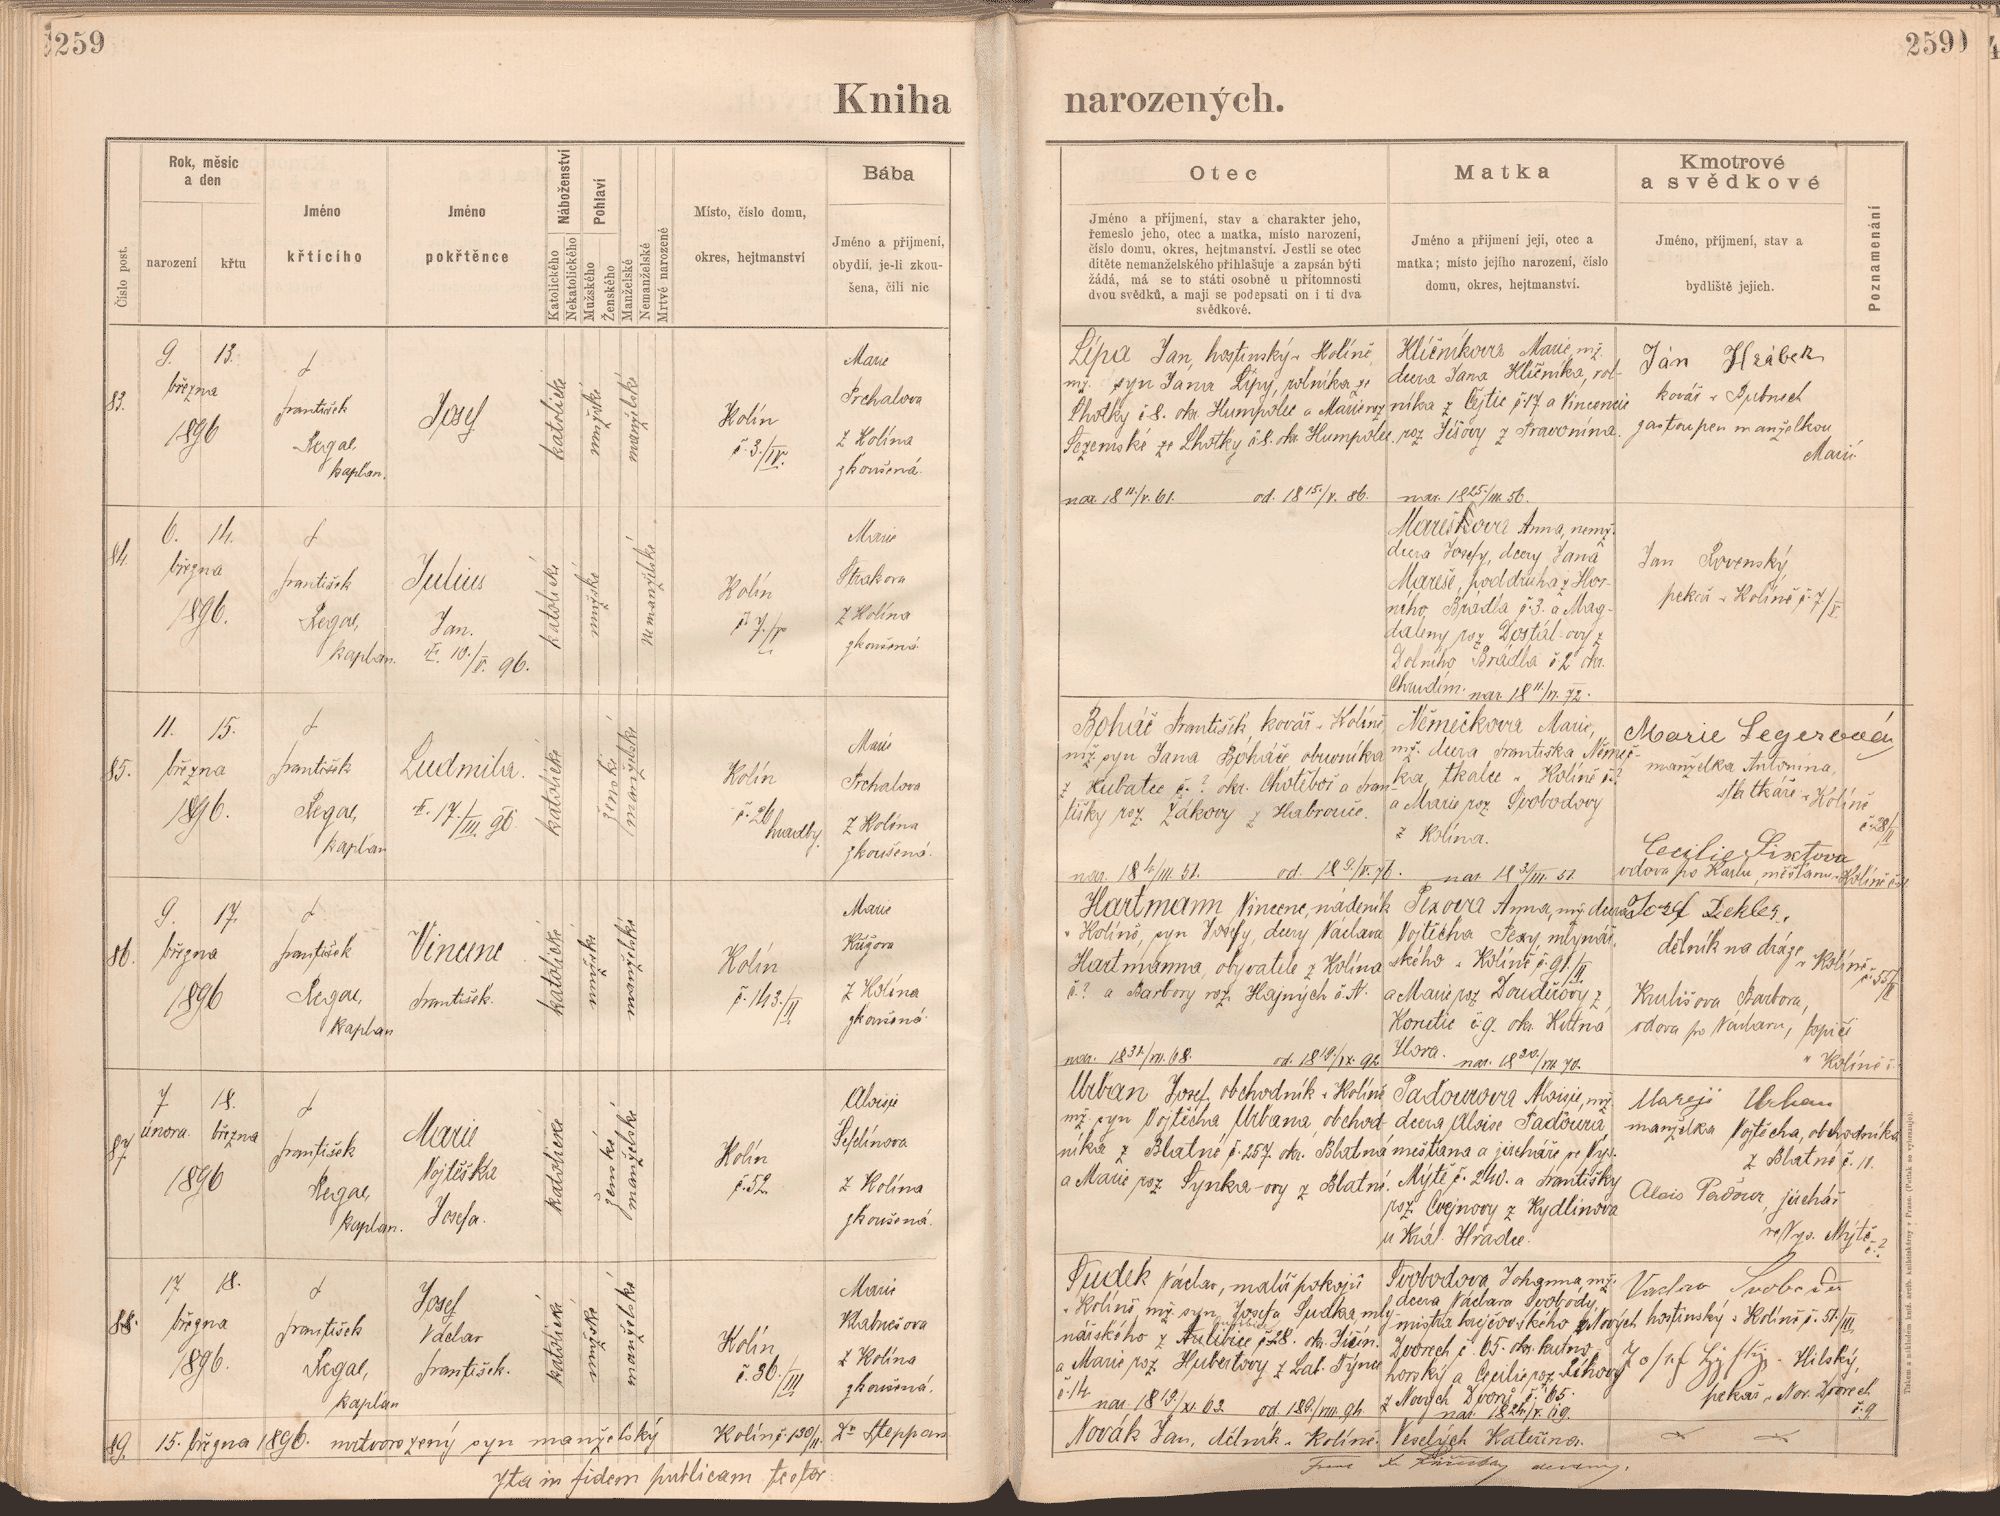 259
2590
Kniha narozených.
Číslo post.
Rok, měsíc
a den
narození
křtu
Jméno
křtícího
Jméno
pokřtěnce
Náboženství
Katolického
Nekatolického
Pohlaví
Mužského
Ženského
Manželské
Nemanželské
Mrtvě narozené
Místo, číslo domu,
okres, hejtmanství
Bába
Jméno a příjmení,
obydlí, je-li zkou-
šena, čili nic
Otec
Jméno a příjmení, stav a charakter jeho,
řemeslo jeho, otec a matka, místo narození,
číslo domu, okres, hejtmanství. Jestli se otec
dítěte nemanželského přihlašuje a zapsán býti
žádá, má se to státi osobně u přítomnosti
dvou svědků, a mají se podepsati on i ti dva
svědkové.
Matka
Jméno a příjmení její, otec a
matka; místo jejího narození, číslo
domu, okres, hejtmanství.
Kmotrové
a svědkové
Jméno, příjmení, stav a
bydliště jejich.
Poznamenání
83.
9. 13.
března
1896
František
Regal,
kaplan.
Josef
katolické
mužské
manželské
Kolín
č. 3/IV.
Marie
Trchalova
z Kolína
zkoušená.
Lípa Jan, hostinský v Kolíně,
mž. syn Jana Lípy, rolníka ze
Lhotky č 8. okr. Humpolec a Marie roz
Sezemské ze Lhotky č 8. okr. Humpolec.
nar 18 11./V. 61. od. 18 15./V. 86.
Klíčníkova Marie, mž.
dcera Jana Klíčníka, rol-
níka z Čejtic č 17 a Vincencie
roz. Ješovy z Pravonína.
nar. 18 25/III. 56.
Ján Hrábek
kovář v
zastoupen manželkou
Marií
84.
6. 14.
března
1896.
František
Regal,
kaplan.
Julius
Jan.
10./V. 96.
katolické
mužské
Nemanželské
Kolín
č. 7./V
Marie
Strakova
z Kolína
zkoušená.
Marešova Anna, nemž.
dcera Josefy, dcery Jana
Mareše, poddruha z Hor-
ního Bradla č. 3. a Mag-
daleny roz Dostál-ovy z
Dolního Bradla č 2 okr.
Chrudim. nar 18 11/VI. 72.
Jan Rovenský,
pekař v Kolíně č. 7/V.
85.
11. 15.
března
1896.
František
Regal,
kaplan
Ludmila.
17./III. 96.
katolické
ženské
manželské
Kolín
č. 26
hradby.
Marie
Trchalova
z Kolína
zkoušená.
Boháč František, kovář v Kolíně,
mž. syn Jana Boháče, obuvníka
z č. ? okr. Chotěboř a Fran-
tišky roz. Žákovy z Habrovic.
nar. 18 /III. 51. od. 18 9./V. 76.
Němečkova Marie,
mž. dcera Františka Němeč-
ka, tkalce v Kolíně č. ?
a Marie roz Svobodovy
z Kolína.
nar 18 3/III. 51.
Marie Segerová
manželka Antonína,
statkáře v Kolíně
č 28/II
Cecilie Sixtova
vdova po Karlu, měšťanu v Kolíně č.
86.
9. 17.
března
1896
František
Regal,
kaplan
Vincenc
František.
katolické
mužské
manželské
Kolín
č. 143./II
Marie
Kužova
z Kolína
zkoušená.
Hartmann Vincenc, nádeník
v Kolíně, syn Josefy, dcery Václava
Hartmanna, obyvatele z Kolína
č. ? a Barbory roz. Hajných č. N.
nar. 18 31/VII. 68. od. 18 19./IX. 92.
Pexova Anna, mž dcera
Vojtěcha Pexy, mlynář-
ského v Kolíně č. 91/II
a Marie roz Douděrovy z
Konetic č. 9. okr. Kutná
Hora. nar. 18 20/VII. 70.
Josef Dekler,
dělník na dráze v Kolíně
č. 55/II
Krulišova Barbora,
vdova po Václavu, topiči
v Kolíně č.
87
7. 18.
února. března
1896
František
Regal,
kaplan.
Marie
Vojtěška
Josefa.
katolické
ženské
manželské
Kolín
č. 52
Aloisie
Šefelínova
z Kolína
zkoušená.
Urban Josef, obchodník v Kolíně
mž. syn Vojtěcha Urbana, obchod-
níka z Blatné č. 257. okr. Blatná
a Marie roz Synka-ovy z Blatné.
Paďourova Aloisie, mž
dcera Aloise Paďoura
měšťana a jircháře ve Vys.
Mýtě č. 240. a Františky
roz. Čvejnovy z Kydlinova
u Král. Hradce.
Marejí Urban
manželka Vojtěcha, obchodníka
z Blatné č. 11.
Alois Paďour, jirchář
ve Vys. Mýtě
č. ?
88.
17. 18.
března
1896.
František
Regal,
kaplan
Josef
Václav
František.
katolické
mužské
manželské
Kolín
č. 36./III
Marie
Klabnešova
z Kolína
zkoušená.
Pudek Václav, malíř pokojů
v Kolíně, mž. syn Josefa Pudka, mly-
nářského z Aulibic č 28. okr. Jičín.
a Marie roz Hubertovy z Lab. Týnce
č. 14.
nar. 18 19/XI. 63. od 18 9./VIII. 94.
Svobodova Johanna, mž.
dcera Václava Svobody,
mistra krejčovského z Nových
Dvorech č. 65. okr. kutno-
horský a Cecilie roz. Říhovy
z Nových Dvorů č. 65.
nar. 18 24./V. 69.
Vaclav Svoboda
hostinský v Kolíně č. 51./III,
Josef Hilský,
pekař v Nov. Dvorech
č. 9
89.
15. března 1896. mrtvorozený syn manželský
Kolín č. 130/II.
Dr. Steppan
Novák Jan, dělník v Kolíně.
Veselých Kateřina.
Ita in fidem publicam testor:
děkan.
Tiskem a nákladem kníž. arcib. knihtiskárny v Praze. (Patisk se vyhrazuje).